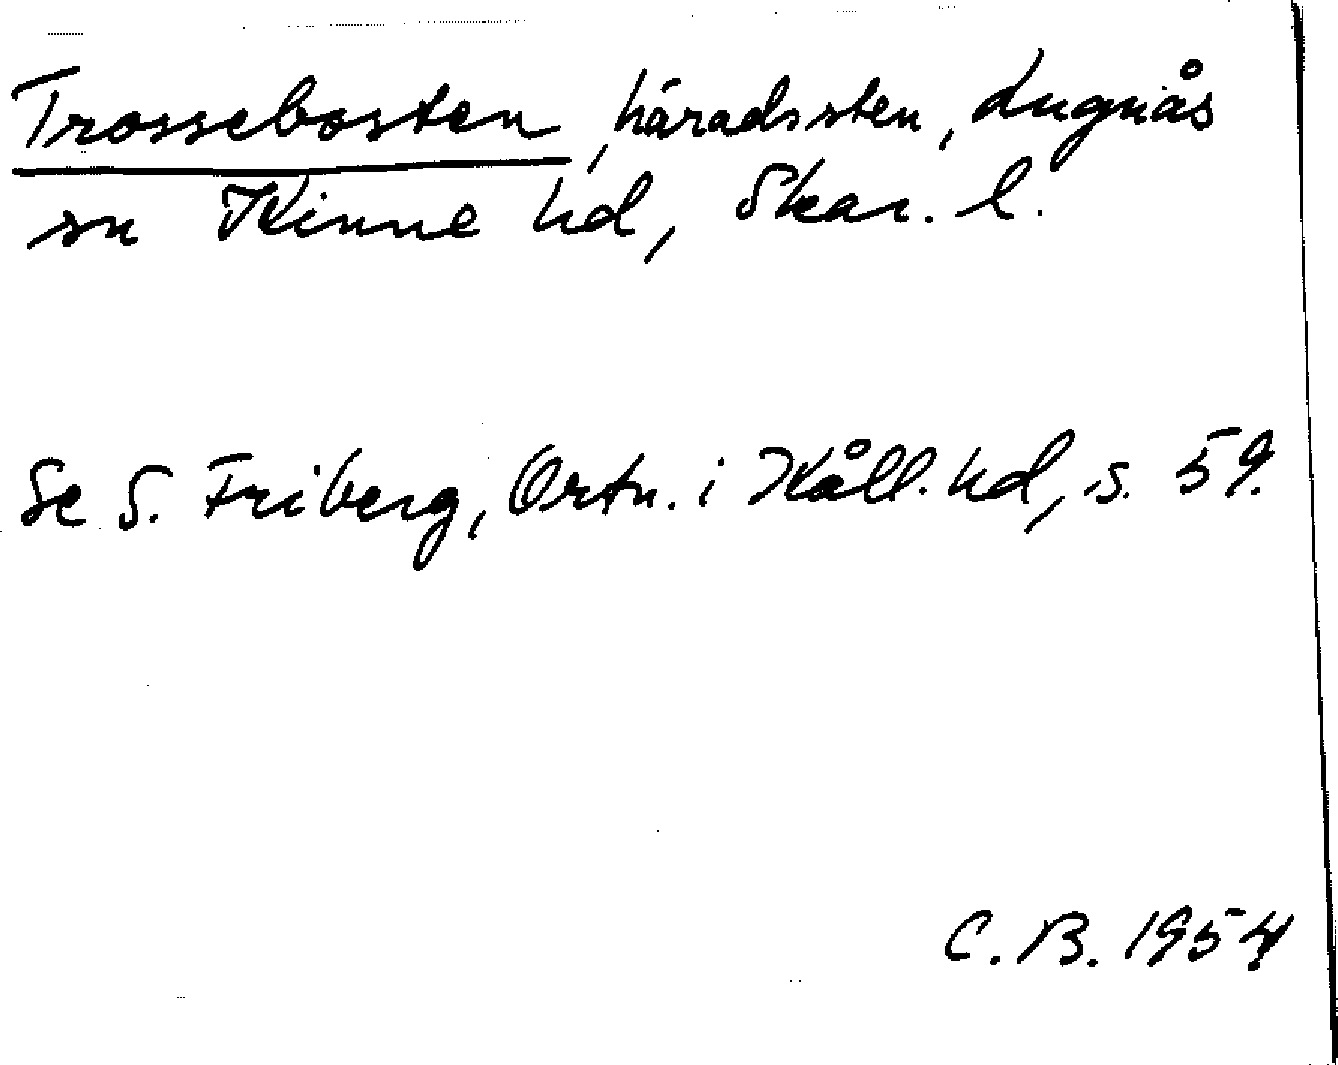 Trossebosten, häradssten, Lugnås
sn Kinne hd, Skar. l.
Se S. Friberg, Ortn. i Kåll. hd, s. 59.
C. B. 1954